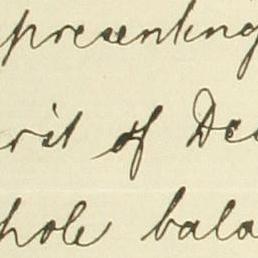 presenting
rst of Dec
hole bala